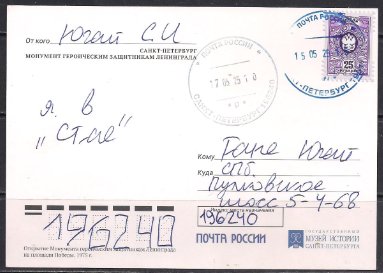 От кого Югай СИ
САНКТ-ПЕТЕРБУРГ
МОНУМЕНТ ГЕРОИЧЕСКИМ ЗАЩИТНИКАМ ЛЕНИНГРАДА
ПОЧТА РОССИИ
17 05 25 10
САНКТ-ПЕТЕРБУРГ
ПОЧТА РОССИИ
15 05 25
-ПЕТЕРБУРГ
25
я в
"Стае"
Кому Гале Югай
Куда СПб.
Пулковское
шоссе 5-4-68
196240
196240
Открытие Монумента героическим защитникам Ленинграда
на площади Победы. 1975 г.
ПОЧТА РОССИИ
ГОСУДАРСТВЕННЫЙ
МУЗЕЙ ИСТОРИИ
САНКТ-ПЕТЕРБУРГА